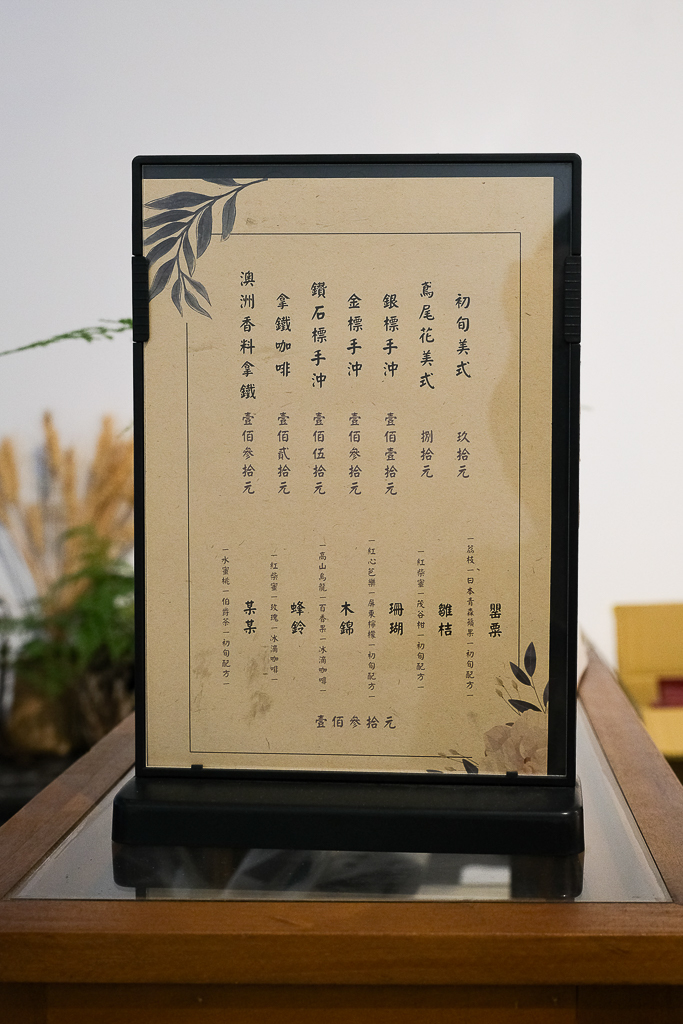 初旬美式 玖拾元
鳶尾花美式 捌拾元
銀標手沖 壹佰壹拾元
金標手沖 壹佰參拾元
鑽石標手沖 壹佰伍拾元
拿鐵咖啡 壹佰貳拾元
澳洲香料拿鐵 壹佰參拾元
罌粟
|荔枝|日本青森蘋果|初旬配方|
雛桔
|紅柴蜜|茂谷柑|初旬配方|
珊瑚
|紅心芭樂|屏東檸檬|初旬配方|
木錦
|高山烏龍|百香果|冰滴咖啡|
蜂鈴
|紅柴蜜|玫瑰|冰滴咖啡|
某某
|水蜜桃|伯爵茶|初旬配方|
壹佰參拾元